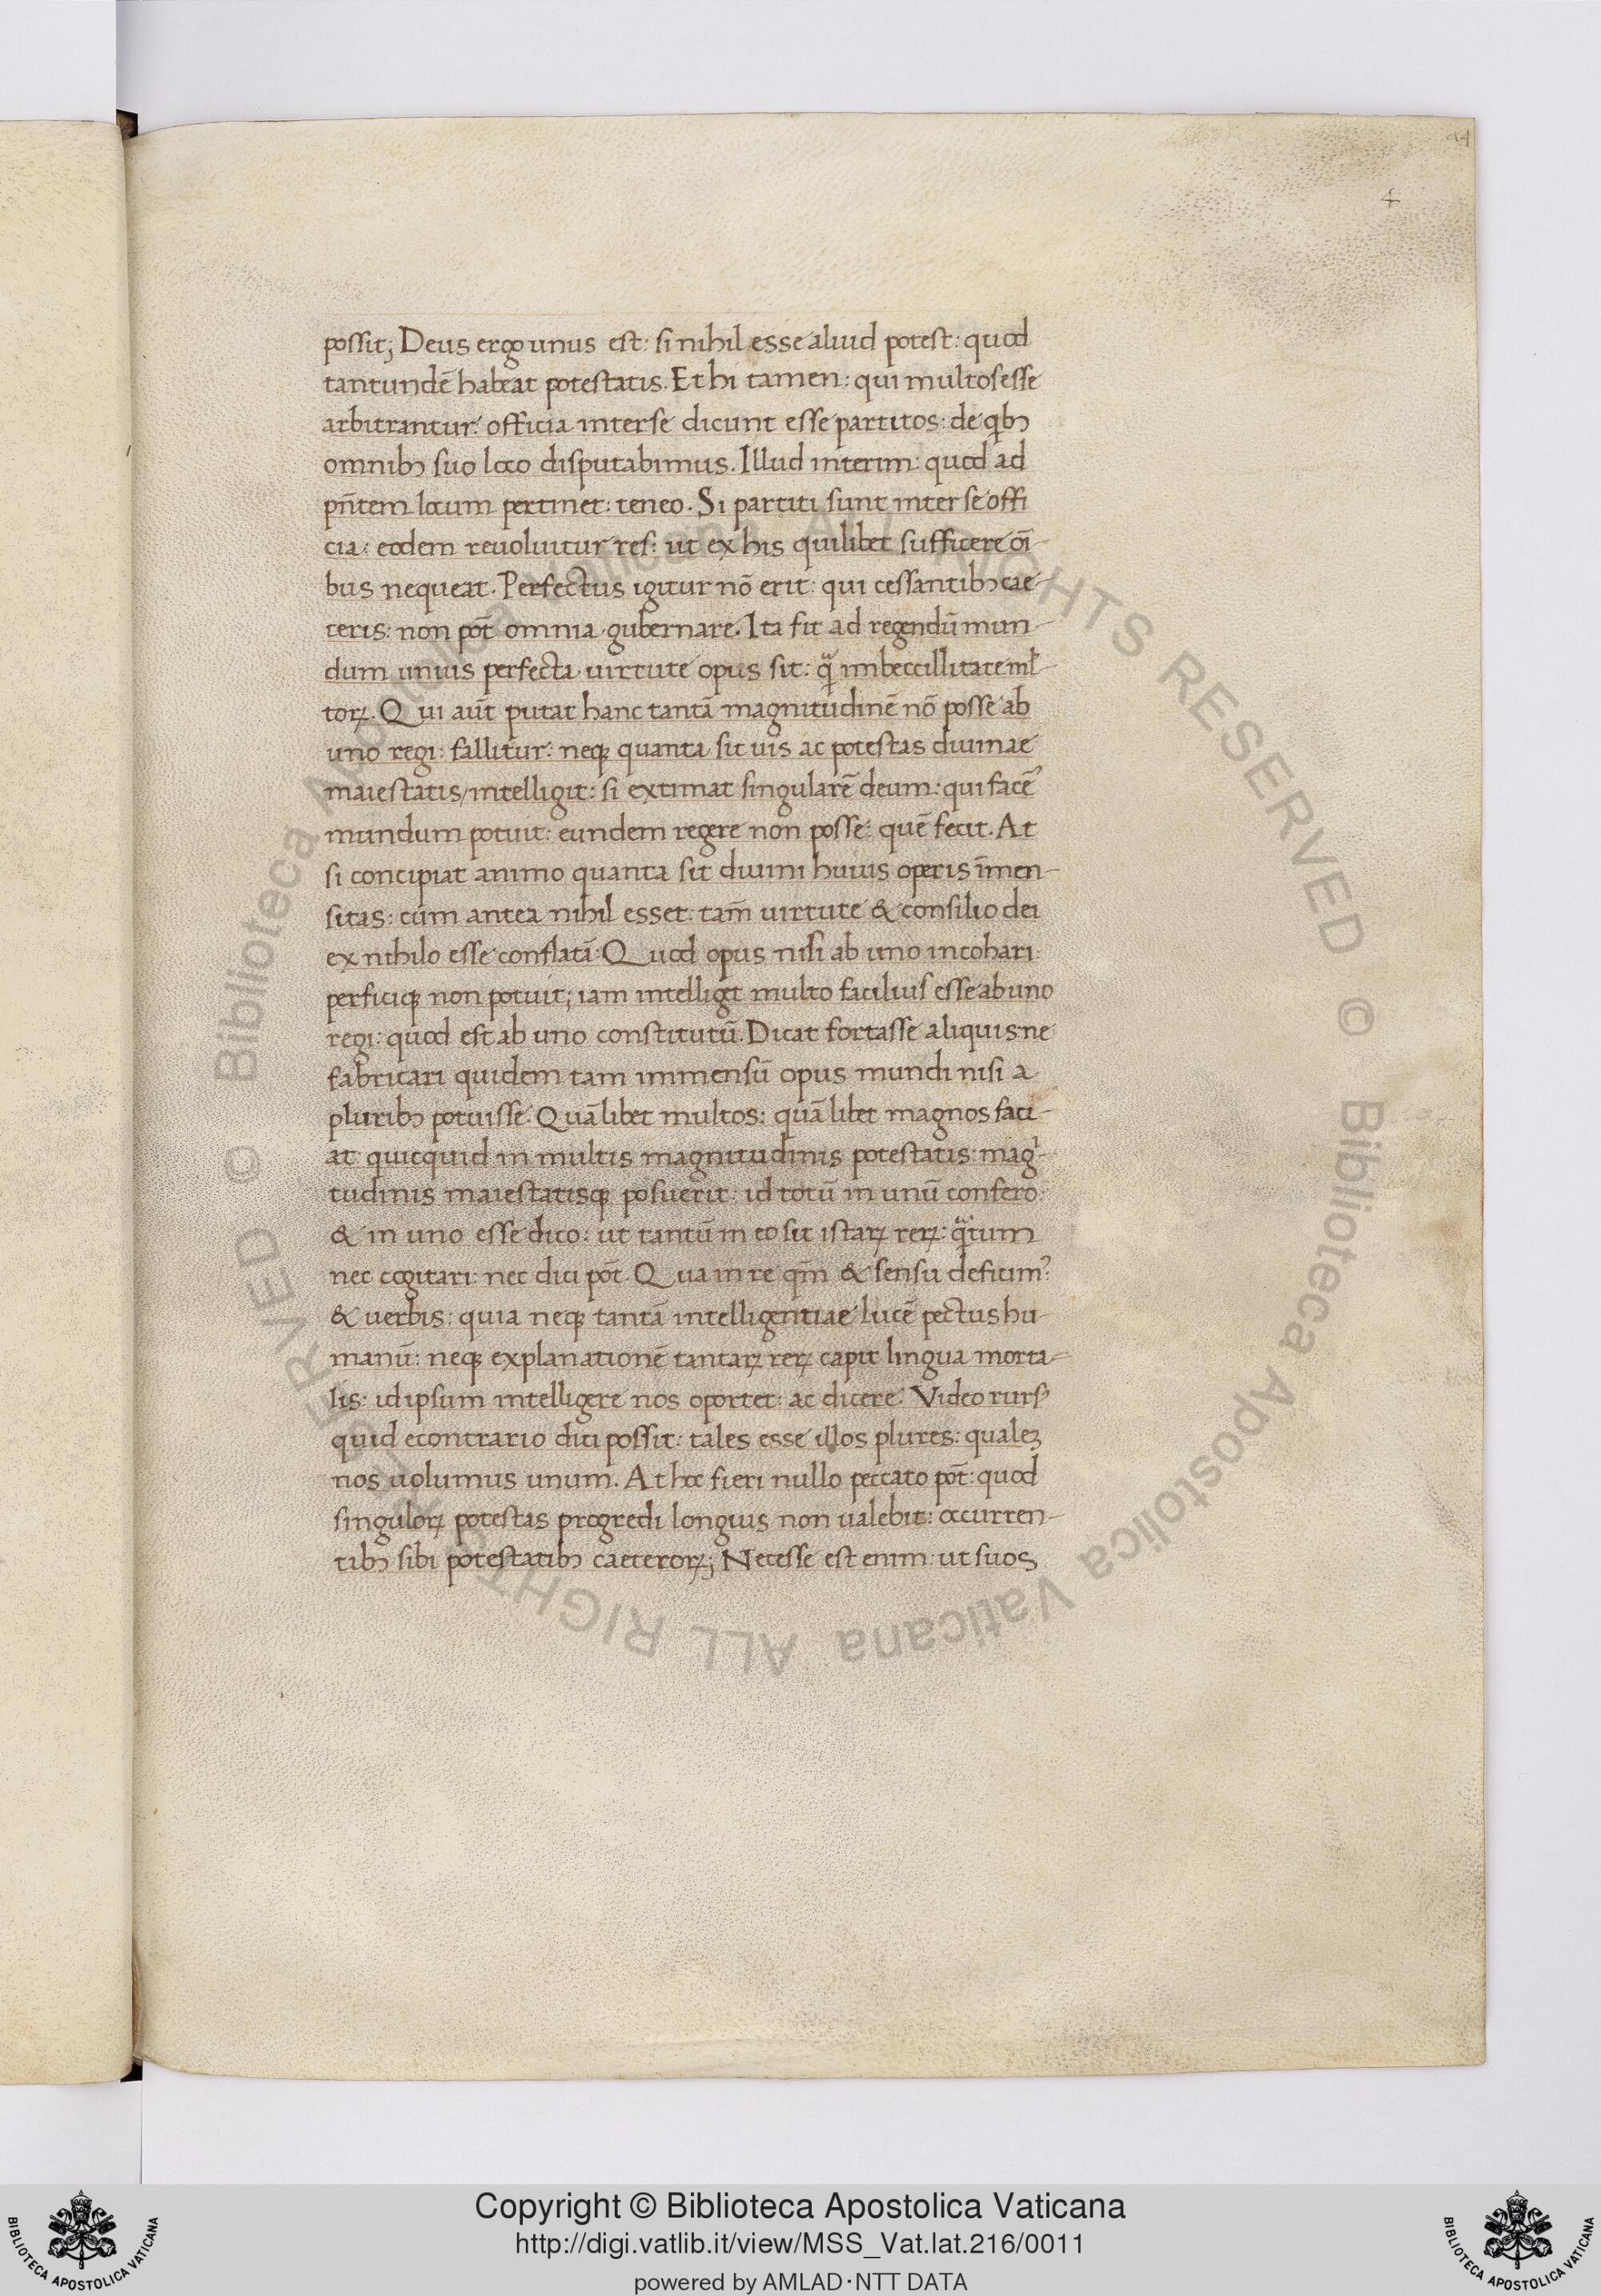 a4
4
possit; Deus ergo unus est: si nihil esse aliud potest: quod
tantundē habeat potestatis. Et hi tamen: qui multos esse
arbitrantur: officia inter se dicunt esse partitos: de qibꝫ
omnibꝫ suo loco disputabimus. Illud interim: quod ad
pn̄tem locum pertinet: teneo. Si partiti sunt inter se offi
cia: eodem reuoluitur res: ut ex his quilibet sufficere oī-
bus nequeat. Perfectus igitur nō erit: qui cessantibꝫ cae-
teris: non pōt omnia gubernare. Ita fit ad regendū mun-
dum unius perfecta uirtute opus sit: qͣ imbeccillitate ml̄-
toꝝ. Qui aūt putat hanc tantā magnitudinē nō posse ab
uno regi: fallitur: neqꝫ quanta sit uis ac potestas diuinae
maiestatis/ intelligit: si extimat singularē deum: qui facē
mundum potuit: eundem regere non posse: quē fecit. At
si concipiat animo quanta sit diuini huius operis īmen-
sitas: cum antea nihil esset: tam̄ uirtute & consilio dei
ex nihilo esse conflatā: Quod opus nisi ab uno incohari:
perficiqꝫ non potuit; iam intelliget multo facilius esse ab uno
regi: quod est ab uno constitutū. Dicat fortasse aliquis ne
fabricari quidem tam immensū opus mundi nisi a
pluribꝫ potuisse. Quālibet multos: quālibet magnos faci-
at: quicquid in multis magnitudinis potestatis: magⁱ-
tudinis maiestatisqꝫ posuerit: id totū in unū confero:
& in uno esse dico: ut tantū in eo sit istaꝝ reꝝ: qͣtum
nec cogitari: nec dici pōt. Qua in re qm̄ & sensu deficimꝰ:
& uerbis: quia neqꝫ tantā intelligentiae lucē pectus hu-
manū: neqꝫ explanationē tantaꝝ reꝝ capit lingua morta-
lis: id ipsum intelligere nos oportet: ac dicere. Video rursꝰ
quid econtrario dici possit: tales esse illos plures: qualeꝫ
nos uolumus unum. At hoc fieri nullo peccato pōt: quod
singuloꝝ potestas progredi longius non ualebit: occurren-
tibꝫ sibi potestatibꝫ caeteroꝝ; Necesse est enim: ut suos
© Biblioteca Apostolica Vaticana ALL RIGHTS RESERVED © Biblioteca Apostolica Vaticana ALL RIGHTS RESERVED
Copyright © Biblioteca Apostolica Vaticana
http://digi.vatlib.it/view/MSS_Vat.lat.216/0011
powered by AMLAD·NTT DATA
BIBLIOTECA APOSTOLICA VATICANA
BIBLIOTECA APOSTOLICA VATICANA